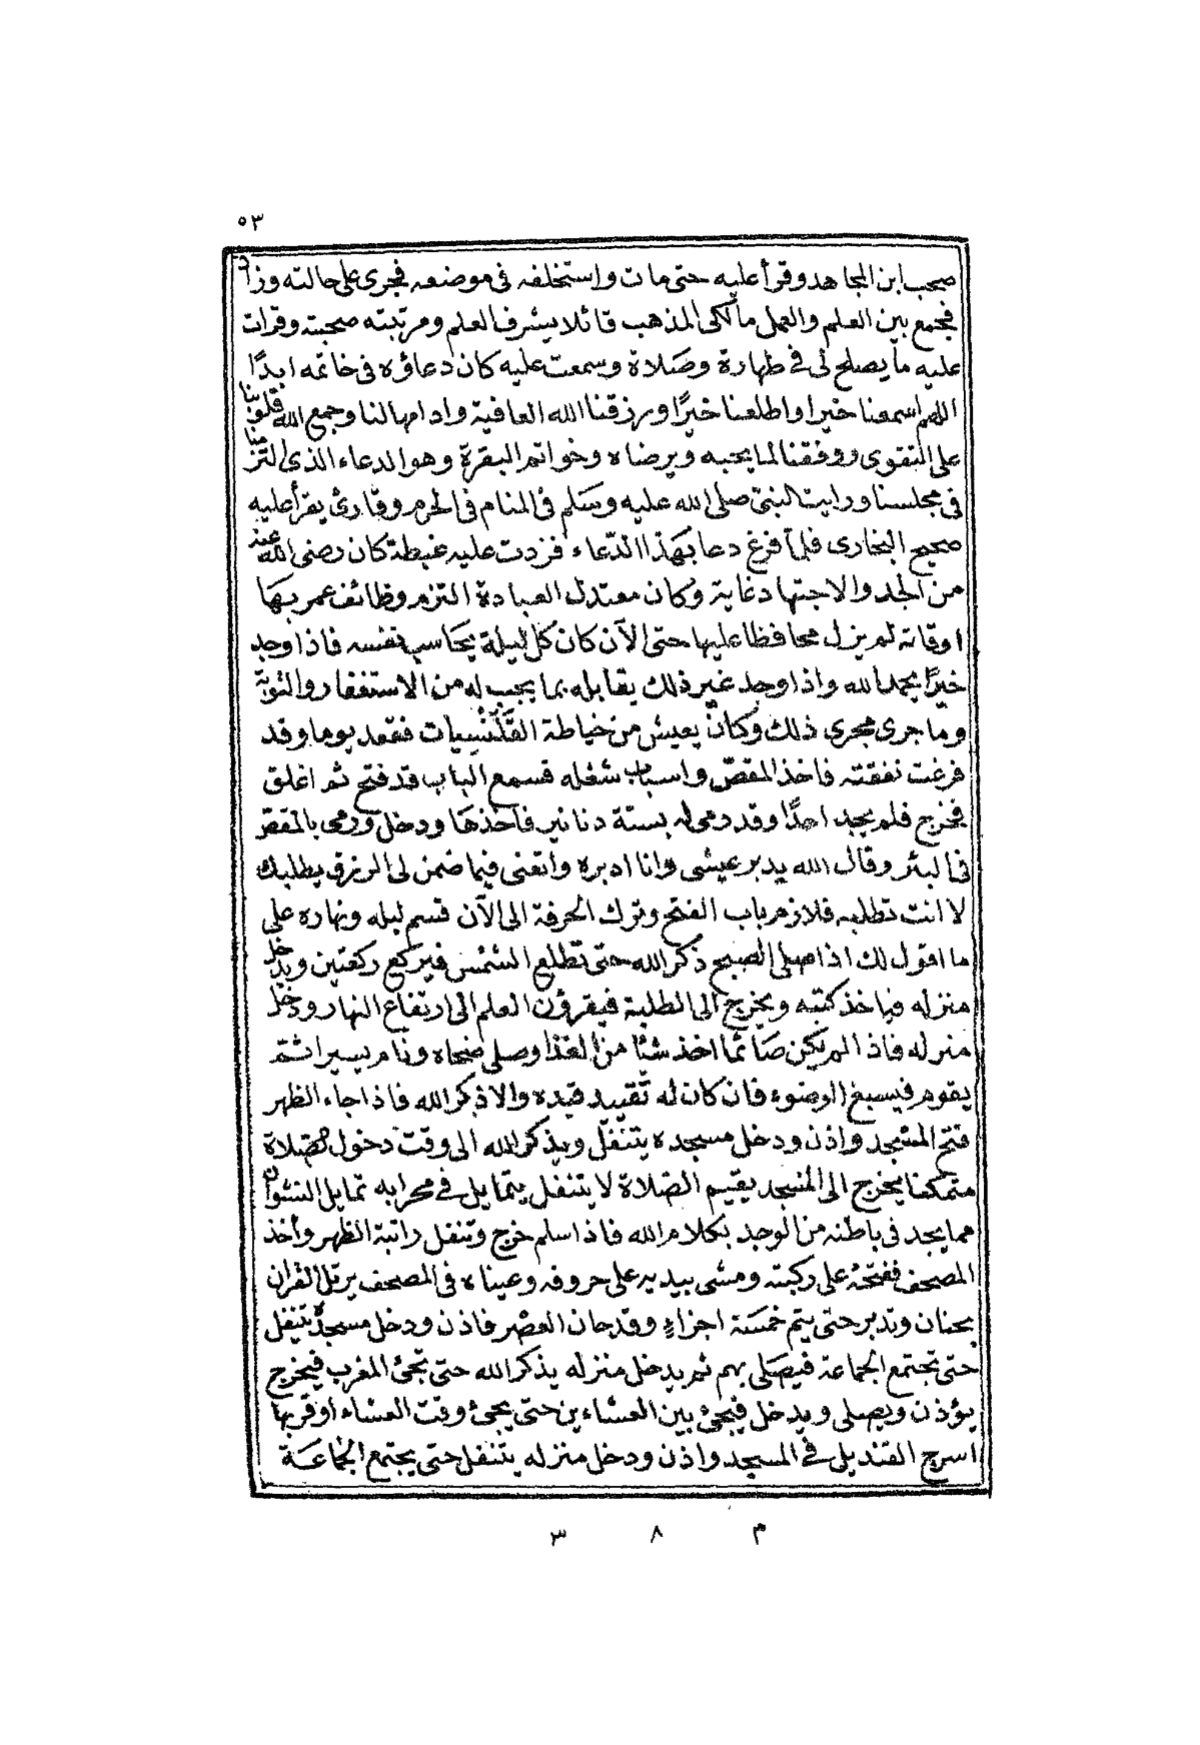 ٥٣
صحب ابن المجاهد وقرأ عليه حتى مات واستخلفه فى موضعه فجرى على حالته وزاد
فجمع بين العلم والعمل مالكى المذهب قائلا بشرف العلم ومرتبته صحبته وقرات
عليه ما يصلح لى فى طهارة وصلاة وسمعت عليه كان دعاؤه فى خاتمه ابدًا
اللهم اسمعنا خيرا واطلعنا خيرًا ورزقنا الله العافية وادامها لنا وجمع الله قلوبنا
على التقوى ووفقنا لما يحبه ويرضاه وخواتم البقرة وهو الدعاء الذى التزمنا
فى مجلسنا ورايت النبىّ صلى الله عليه وسلم فى المنام فى الحرم وقارئ يقرأ عليه
صحيح البخارى فلما فرغ دعا بهذا الدّعاء فزدت عليه غبطة كان رضى الله عنه
من الجد والاجتهاد غاية وكان معتدل العبادة التزم وظائف عمر بها
اوقاته لم يزل محافظا عليها حتى الآن كان كل ليلة يحاسب نفسه فاذا وجد
خيرًا يحمد الله واذا وجد غير ذلك يقابله بما يجب له من الاستغفار والتوبة
وما جرى مجرى ذلك وكان يعيش من خياطة القَلَنْسِيات فقعد يوما وقد
فرغت نفقته فاخذ المقصّ واسباب شغله فسمع الباب قد فتح ثم اغلق
فخرج فلم يجد احدًا وقد رمى له بستة دنانير فأخذها ودخل ورمى بالمقص
فى البئر وقال الله يدبر عيشى وانا ادبره واتعنى فيما ضمن لى الرزق يطلبك
لا انت تطلبه فلازم باب الفتح وترك الحرفة الى الآن قسم ليله ونهاره على
ما اقول لك اذا صلى الصبح ذكر الله حتى تطلع الشمس فيركع ركعتين ويدخل
منزله فياخذ كتبه ويخرج الى الطلبة فيقرؤن العلم الى ارتفاع النهار ودخل
منزله فاذا لم يكن صائما اخذ شئا من الغذا وصلى ضحاه ونام يسيرا ثم
يقوم فيسبغ الوضوء فان كان له تقييد قيده والا ذكر الله فاذا جاء الظهر
فتح المسجد واذن ودخل مسجده يتنفّل ويذكر الله الى وقت دخول الصلاة
متمكنا يخرج الى المسجد يقيم الصّلاة لا يتنفل يتمايل فى محرابه تمايل النشوان
مما يجد فى باطنه من الوجد بكلام الله فاذا سلم خرج وتنفل راتبة الظهر وأخذ
المصحف ففتحه على ركبته ومشى بيديه على حروفه وعيناه فى المصحف يرتل القران
بحنان وتدبر حتى يتم خمسة اجزاءٍ وقد حان العصر فاذن ودخل مسجده يتنفل
حتى تجتمع الجماعة فيصلى بهم ثم يدخل منزله يذكر الله حتى تجئ المغرب فيخرج
يؤذن ويصلى ويدخل فيجئ بين العشاءين حتى يجئ وقت العشاء او قربها
اسرج القنديل فى المسجد واذن ودخل منزله يتنفل حتى يجتمع الجماعة
م ٨ ٣